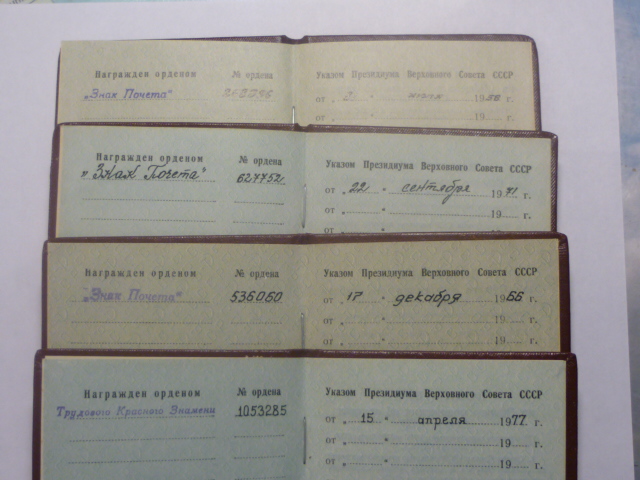 Награжден орденом № ордена Указом Президиума Верховного Совета СССР
„Знак Почета" от „ " 19 г.
Награжден орденом № ордена Указом Президиума Верховного Совета СССР
„Знак Почета" 627752 от „22 " сентября 1971 г.
от „ " 19 г.
от „ " 19 г.
Награжден орденом № ордена Указом Президиума Верховного Совета СССР
„Знак Почета" 536060 от „17 " декабря 1966 г.
от „ " 19 г.
от „ " 19 г.
Награжден орденом № ордена Указом Президиума Верховного Совета СССР
Трудового Красного Знамени 1053285 от „ 15 " апреля 1977 г.
от „ " 19 г.
от „ " 19 г.